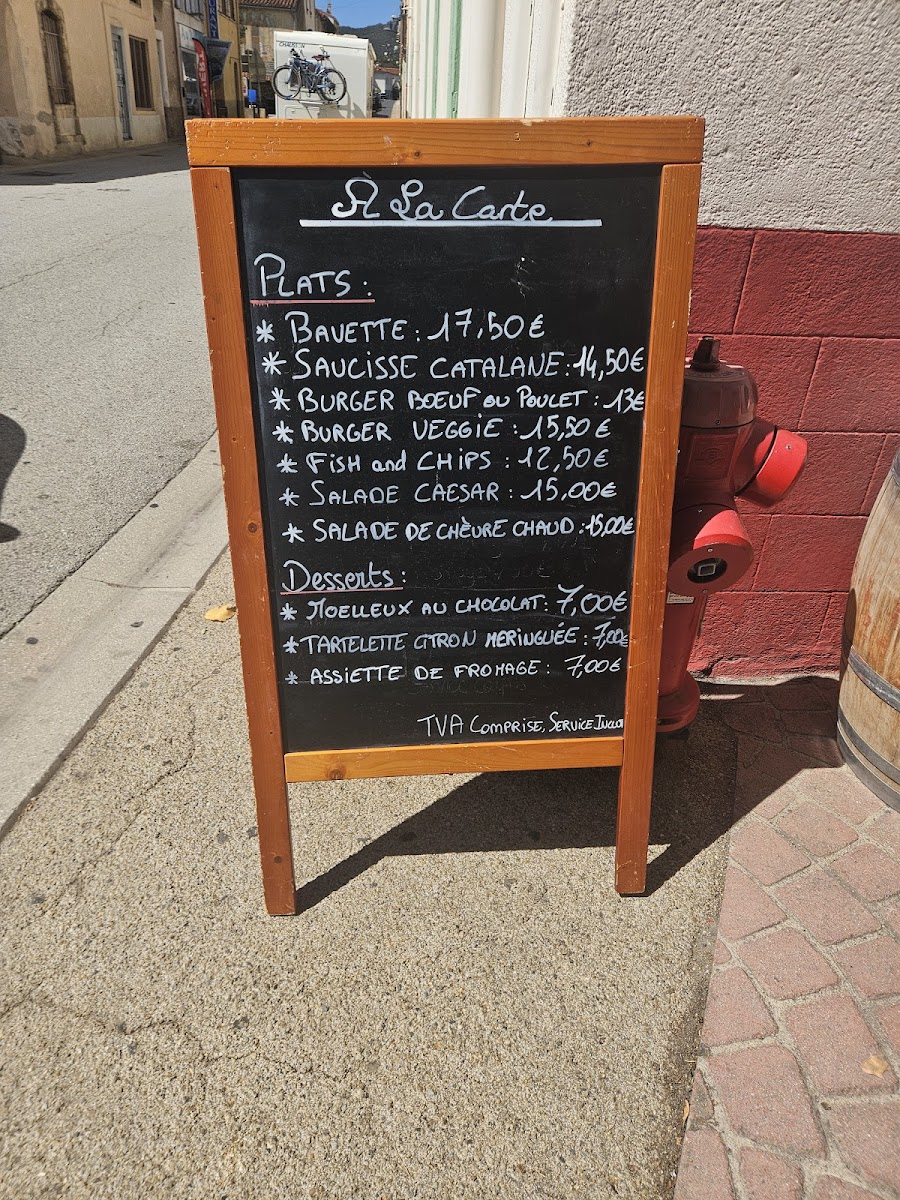 A La Carte
PLATS :
* BAVETTE : 17,50€
* SAUCISSE CATALANE : 14,50€
* BURGER BŒUF ou POULET : 13€
* BURGER VEGGIE : 15,50€
* FISH and CHIPS : 12,50€
* SALADE CAESAR : 15,00€
* SALADE DE CHÈVRE CHAUD : 15,00€
Desserts :
* MOELLEUX AU CHOCOLAT : 7,00€
* TARTELETTE CITRON MERINGUÉE : 7,00€
* ASSIETTE DE FROMAGE : 7,00€
TVA COMPRISE, SERVICE